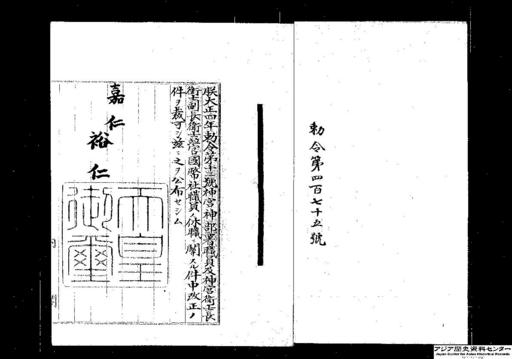 勅令第四百七十五號
朕大正四年勅令第十三號神宮神部署職員及神宮衛士長
衛士副長衛士並官國幣社職員ノ休職ニ關スル件中改正ノ
件ヲ裁可シ茲ニ之ヲ公布セシム
嘉仁
裕仁
天皇
御璽
内閣
アジア歴史資料センター
Japan Center for Asian Historical Records